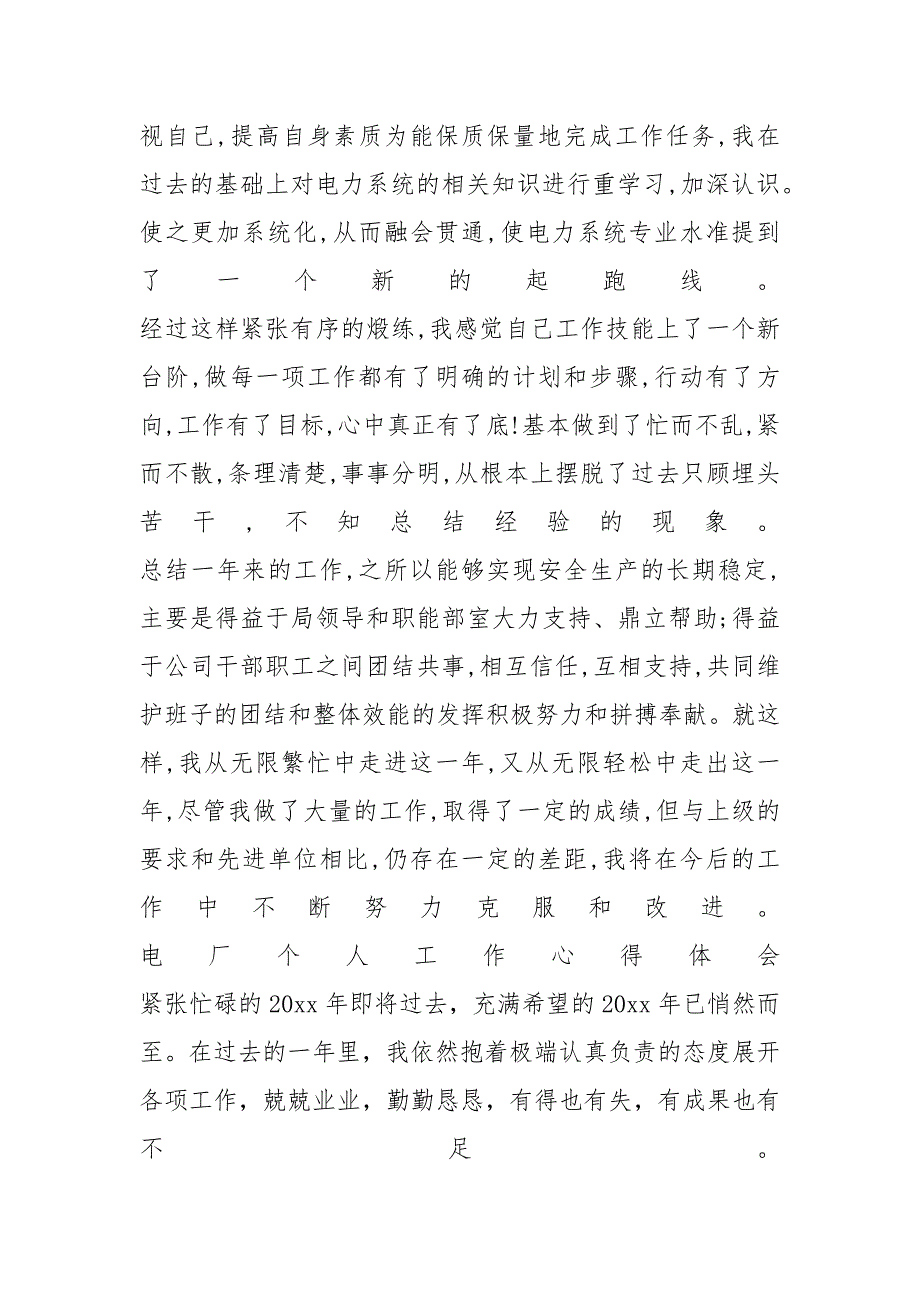 视自己,提高自身素质为能保质保量地完成工作任务,我在
过去的基础上对电力系统的相关知识进行重学习,加深认识。
使之更加系统化,从而融会贯通,使电力系统专业水准提到
了一个新的起跑线。
经过这样紧张有序的煅练,我感觉自己工作技能上了一个新
台阶,做每一项工作都有了明确的计划和步骤,行动有了方
向,工作有了目标,心中真正有了底!基本做到了忙而不乱,紧
而不散,条理清楚,事事分明,从根本上摆脱了过去只顾埋头
苦干,不知总结经验的现象。
总结一年来的工作,之所以能够实现安全生产的长期稳定,
主要是得益于局领导和职能部室大力支持、鼎立帮助;得益
于公司干部职工之间团结共事,相互信任,互相支持,共同维
护班子的团结和整体效能的发挥积极努力和拼搏奉献。就这
样,我从无限繁忙中走进这一年,又从无限轻松中走出这一
年,尽管我做了大量的工作,取得了一定的成绩,但与上级的
要求和先进单位相比,仍存在一定的差距,我将在今后的工
作中不断努力克服和改进。
电厂个人工作心得体会
紧张忙碌的20xx年即将过去，充满希望的20xx年已悄然而
至。在过去的一年里，我依然抱着极端认真负责的态度展开
各项工作，兢兢业业，勤勤恳恳，有得也有失，有成果也有
不足。